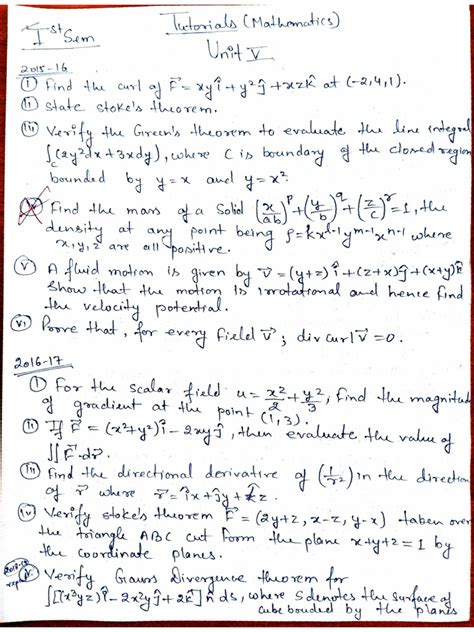 Ist Sem
Tutorials (Mathematics)
Unit V
2015-16
(i) Find the curl of F⃗ = xyî + y²ĵ + xzk̂ at (-2,4,1).
(ii) State stoke's theorem.
(iii) Verify the Green's theorem to evaluate the line integral
∫c(2y²dx + 3xdy), where C is boundary of the closed region
bounded by y=x and y=x².
Find the mass of a Solid (x/ab)^p + (y/b)^q + (z/c)^r = 1, the
density at any point being ρ = kx^l-1 y^m-1 x^n-1 where
x, y, z are all positive.
(v) A fluid motion is given by v⃗ = (y+z)î + (z+x)ĵ + (x+y)k̂
Show that the motion is irrotational and hence find
the velocity potential.
(vi) Prove that, for every field V⃗; div curl V⃗ = 0.
2016-17
(i) For the scalar field u = x²/2 + y²/3, find the magnitud
of gradient at the point (1,3).
(ii) If F⃗ = (x²+y²)î - 2xyĵ, then evaluate the value of
∫∫F⃗·dr⃗.
(iii) Find the directional derivative of (1/r²) in the direction
of r⃗ where r⃗ = îx + ĵy + k̂z.
(iv) Verify stoke's theorem F⃗ = (2y+z, x-z, y-x) taken over
the triangle ABC cut form the plane x+y+z=1 by
the coordinate planes.
Verify Gauss Divergence theorem for
∫[(x³yz)î - 2x²yĵ + 2k̂] n̂ ds, where S denotes the surface of
cube bouded by the planes